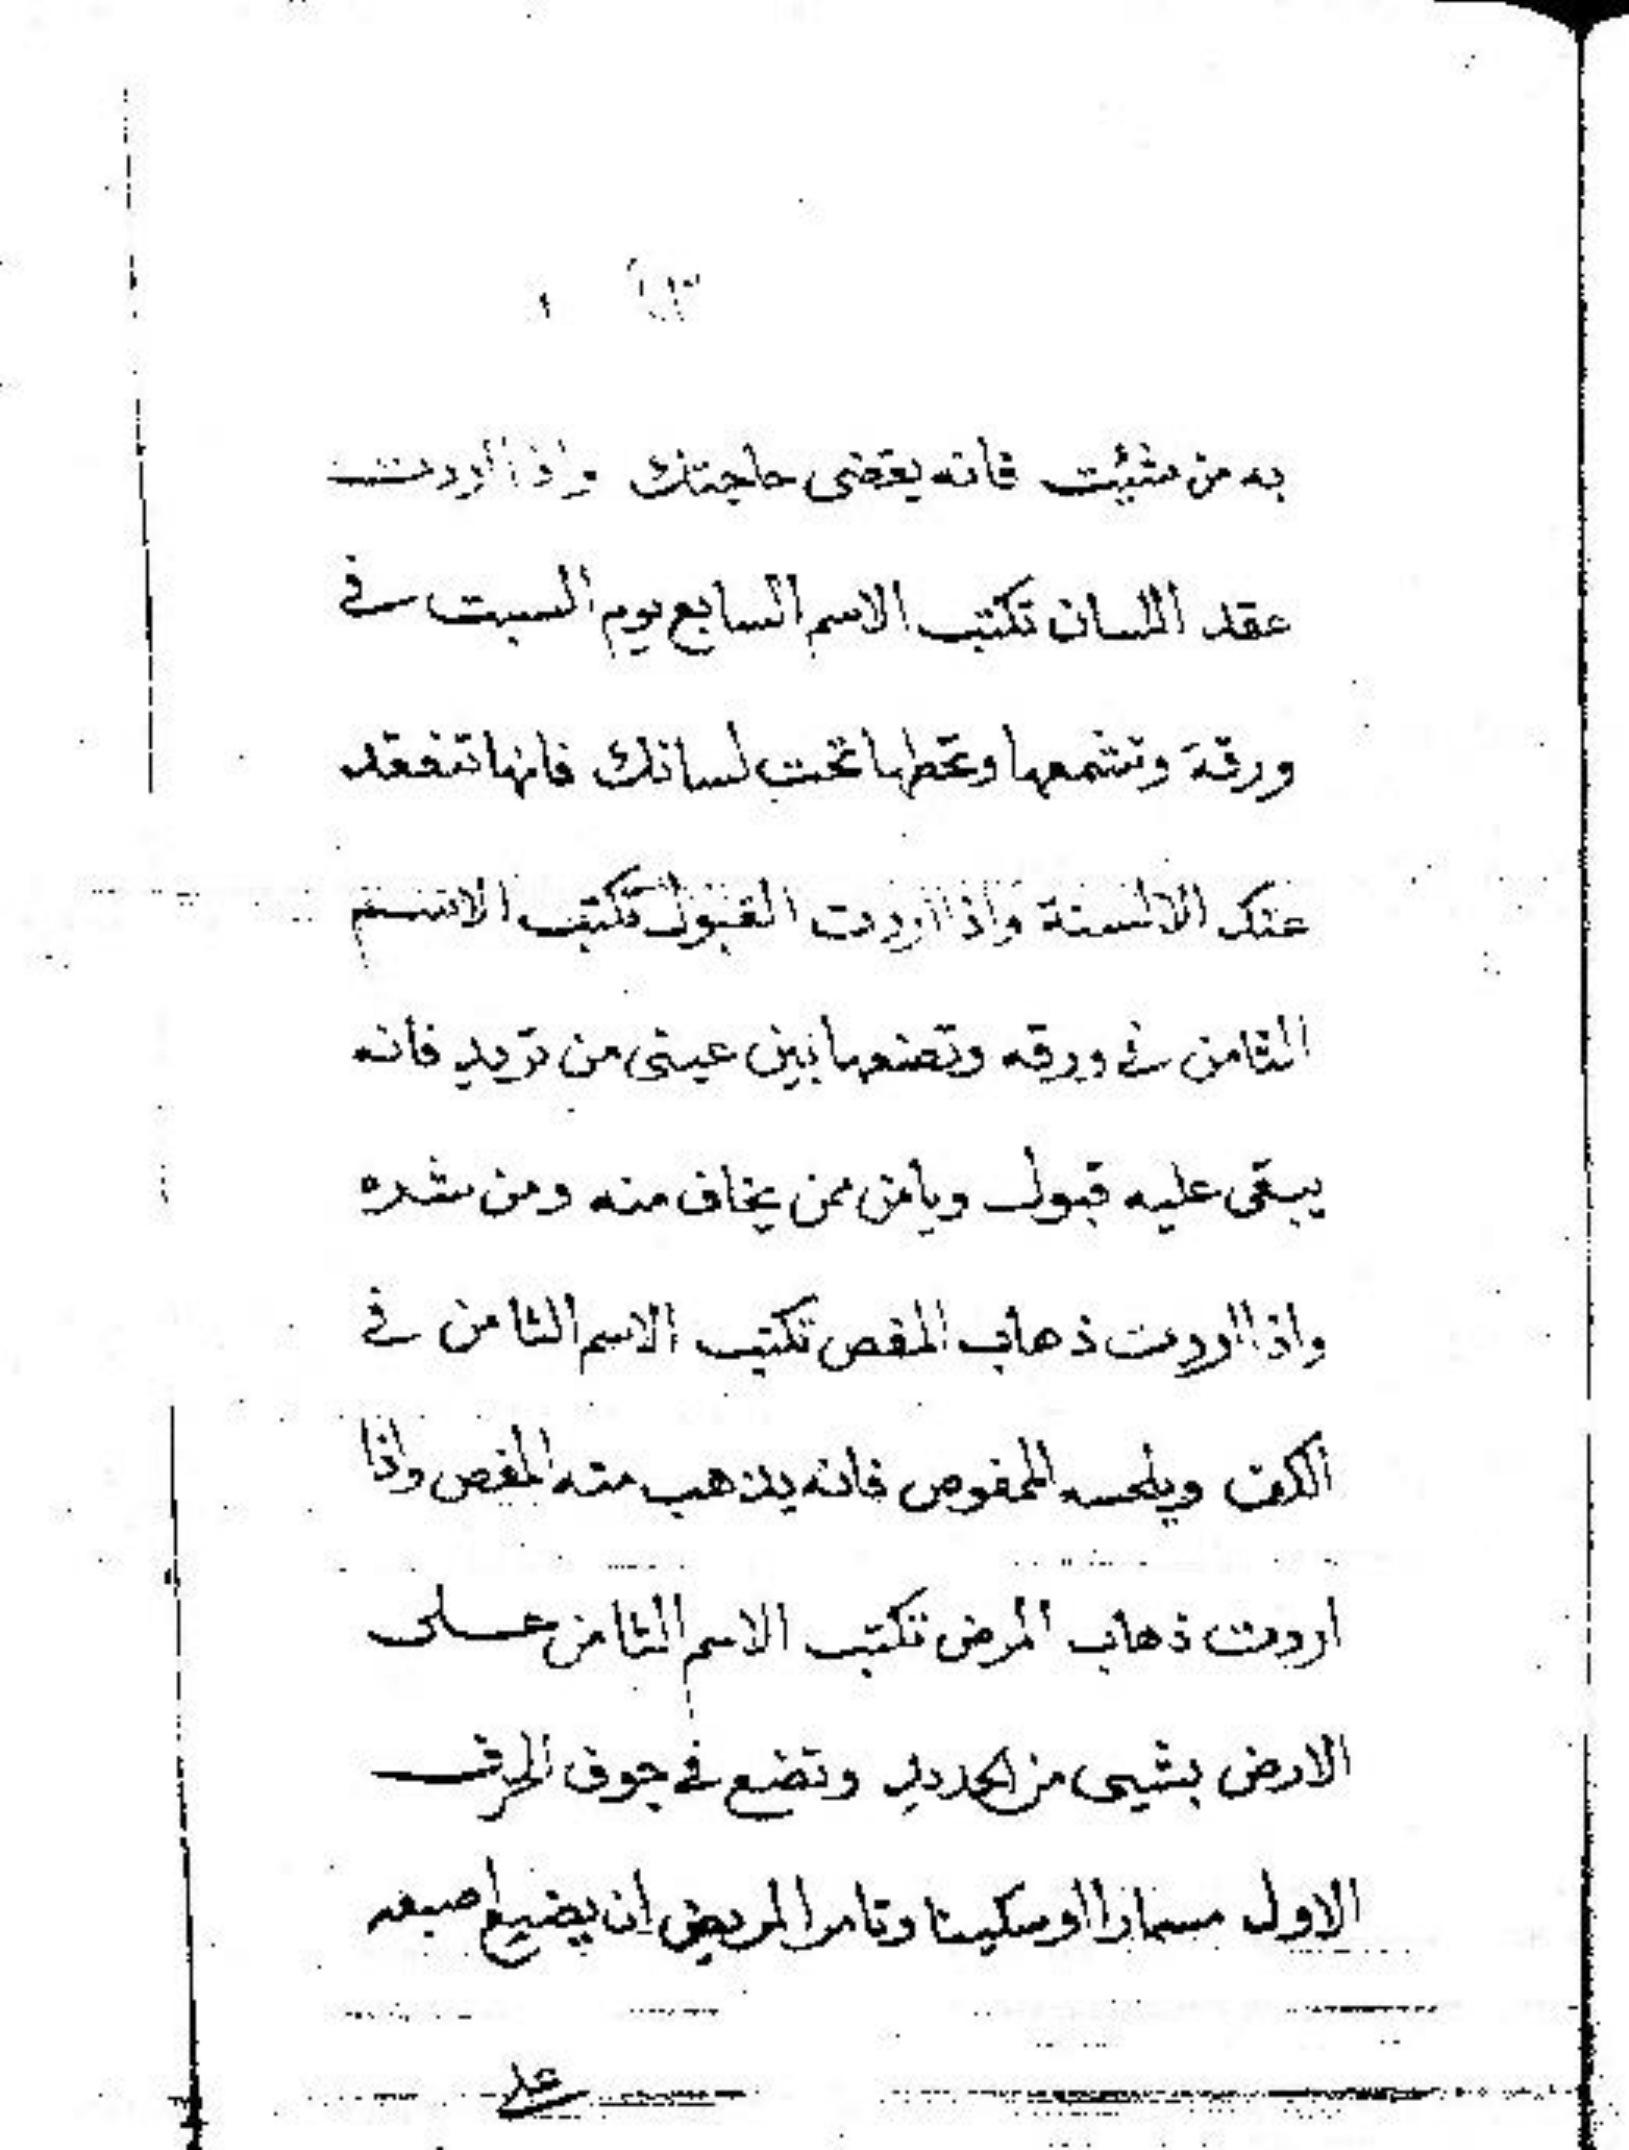 به من شئت فانه يقضى حاجتك واذا اردت
عقد اللسان تكتب الاسم السابع يوم السبت في
ورقة وتشمعها وتحطها تحت لسانك فانها تنعقد
عنك الالسنة واذا اردت القبول تكتب الاسم
الثامن في ورقه وتضعها بين عينى من تريد فانه
يبقى عليه قبول ويامن ممن يخاف منه ومن شره
واذا اردت ذهاب المغص تكتب الاسم الثامن في
الكف ويلحسه الممغوص فانه يذهب منه المغص واذا
اردت ذهاب المرض تكتب الاسم الثامن على
الارض بشيى من الحديد وتضع في جوف الحرف
الاول مسمارا اوسكينا وتامر المريض ان يضع اصبعه
على